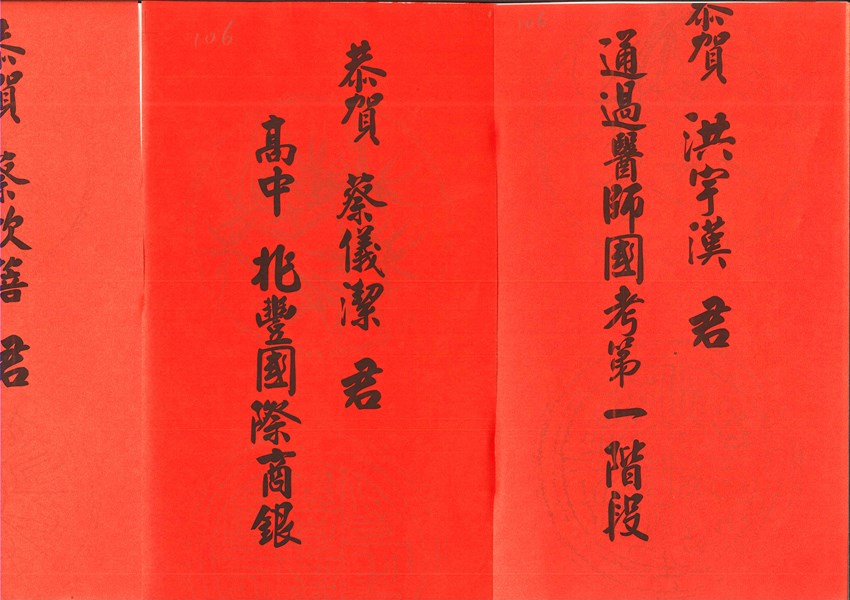 恭賀 洪宇漢 君
通過醫師國考第一階段
106
恭賀 蔡儀潔 君
高中 兆豐國際商銀
106
恭賀 蔡欣 君